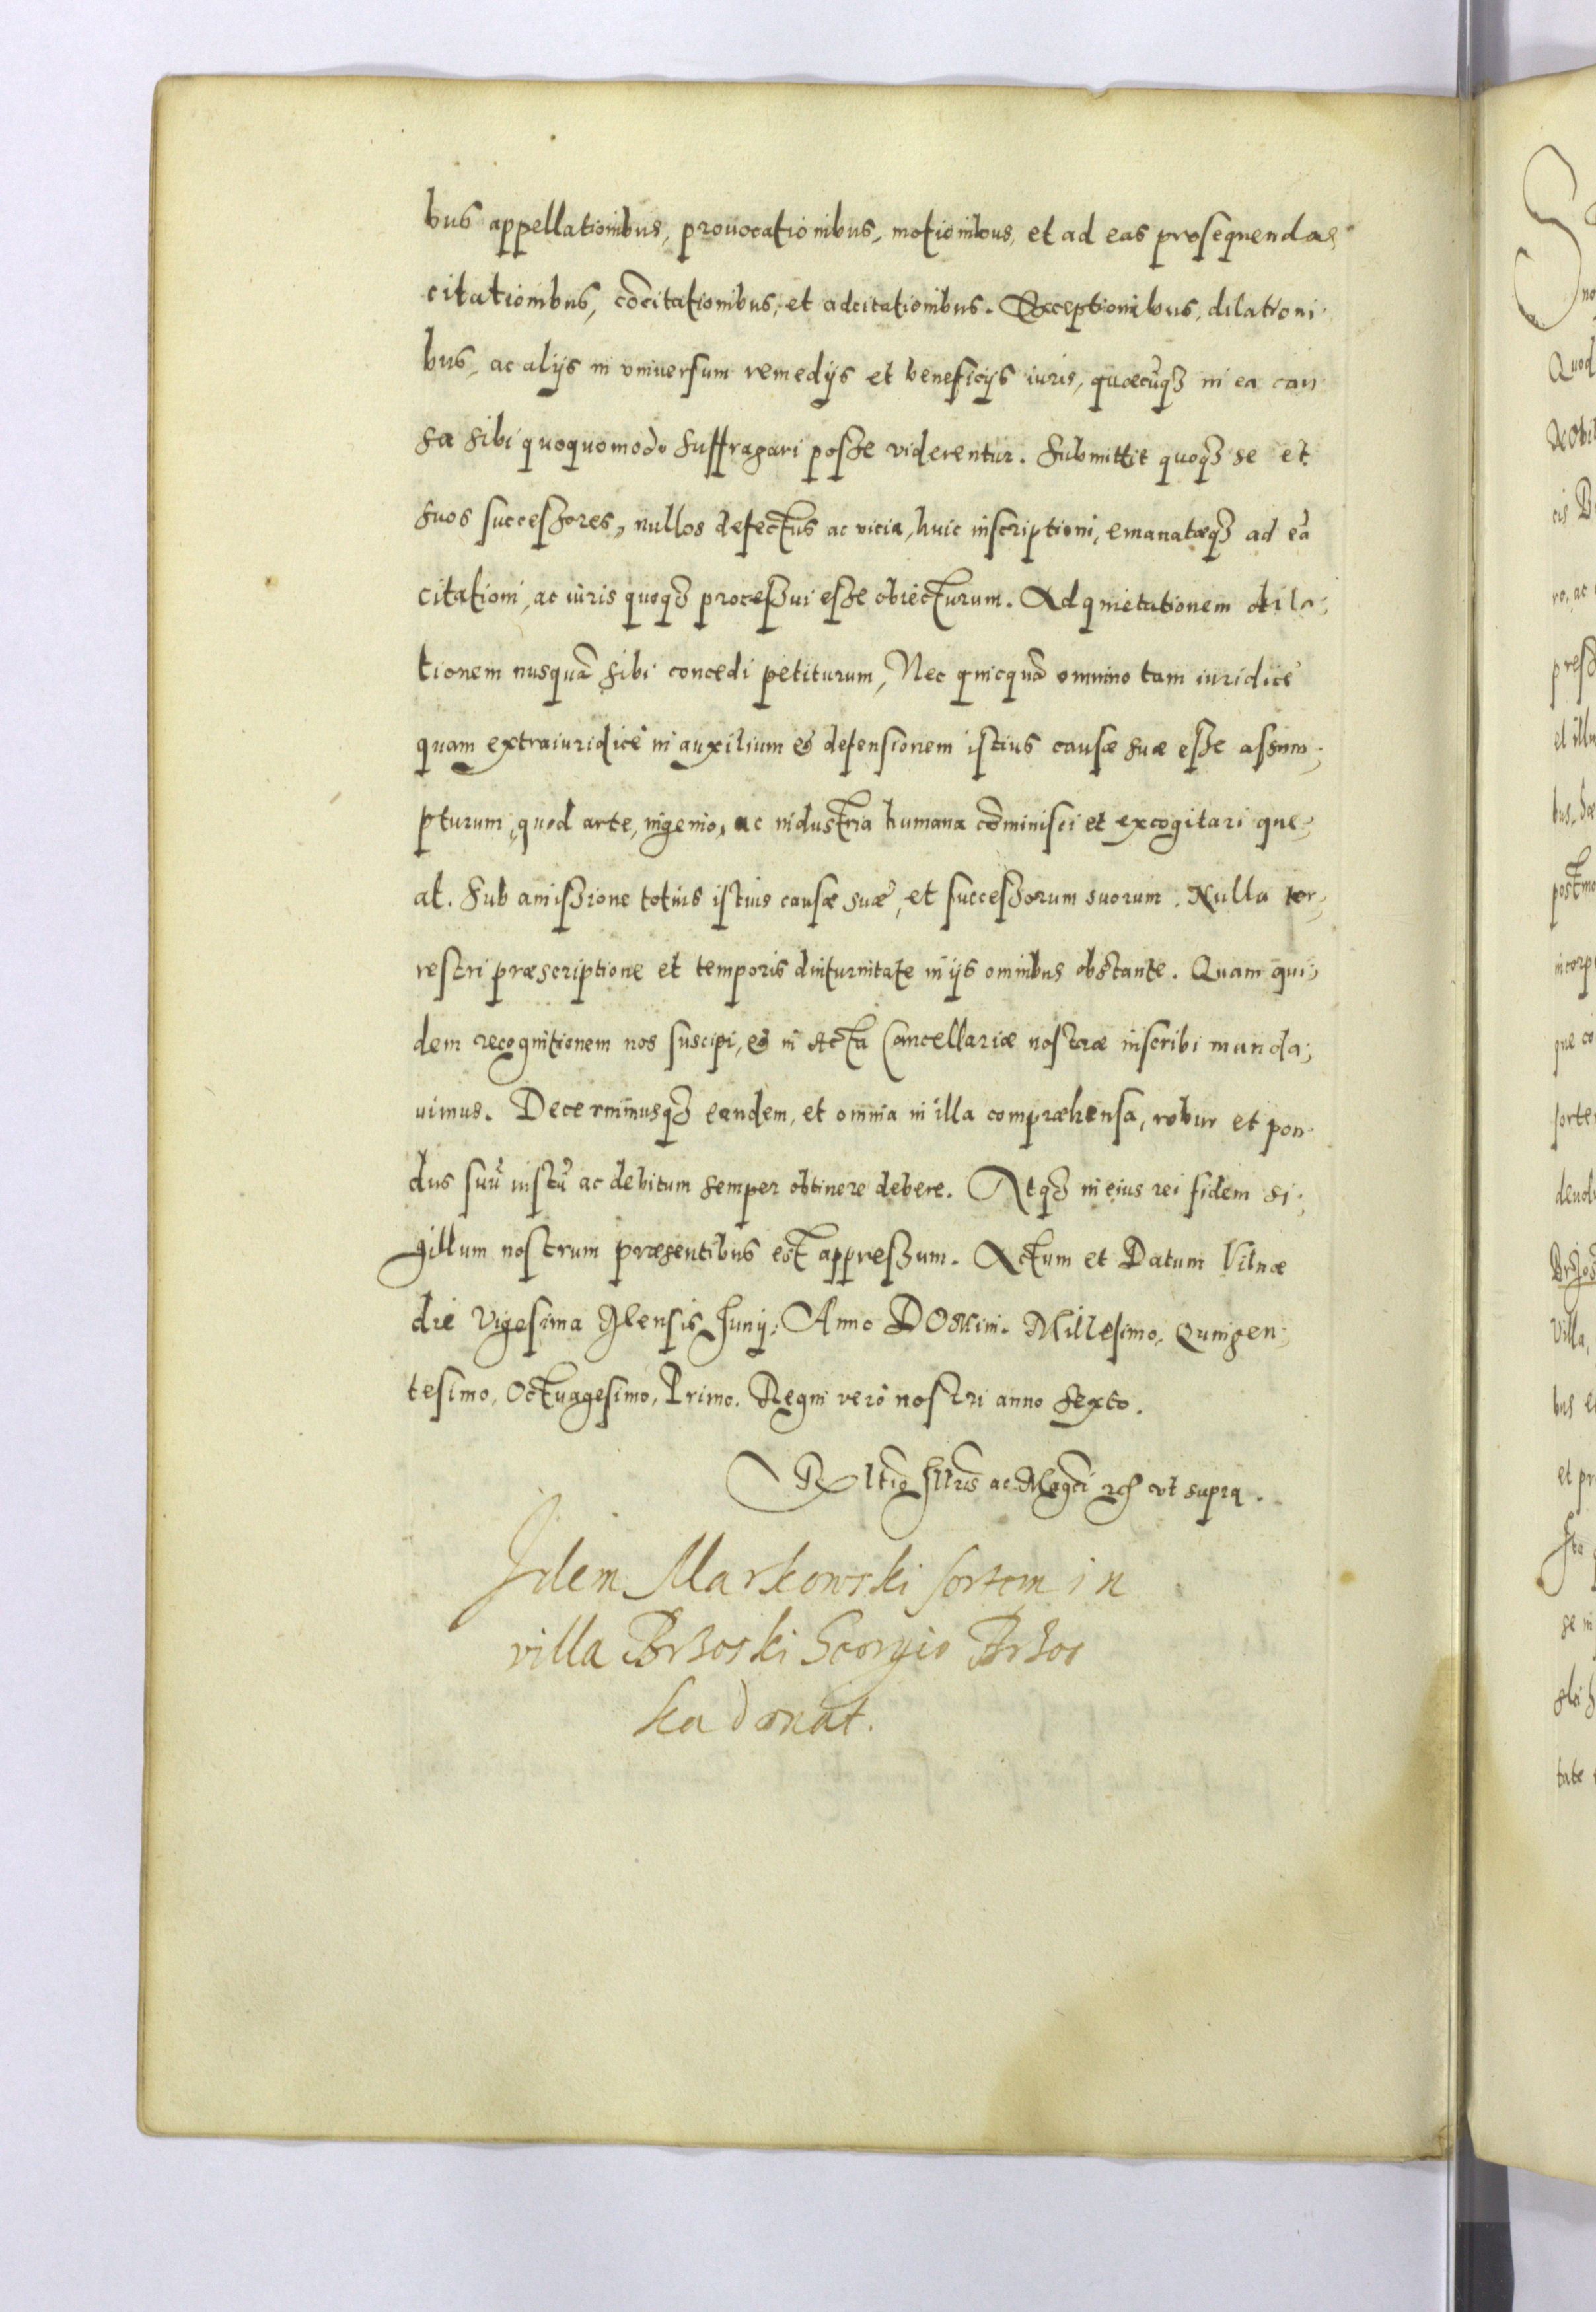 bus appellationibus, prouocationibus, motionibus, et ad eas prosequendas
citationibus, cōcitationibus, et adcitationibus. Exceptionibus, dilationi
bus, ac alijs in vniuersum remedijs et beneficijs iuris, quæcūqꝫ in ea cau
sa sibi quoquomodo suffragari posse viderentur. Submittit quoqꝫ se et
suos successores, nullos defectus ac vicia, huic inscriptioni, emanatæqꝫ ad eā
citationi, ac iuris quoqꝫ processui esse obiecturum. Ad quietationem dila-
tionem nusquā sibi concedi petiturum, Nec quicquā omnino tam iuridicè
quam extraiuridicè in auxilium & defensionem istius causæ suæ esse assum-
pturum, quod arte, ingenio, ac industria humana cōminisci et excogitari que-
at. Sub amissione totius istius causæ suæ, et successorum suorum. Nulla ter-
restri præscriptione et temporis diuturnitate in ijs omnibus obstante. Quam qui-
dem recognitionem nos suscipi, & in Acta Cancellariæ nostræ inscribi manda-
uimus. Decernimusqꝫ eandem, et omnia in illa compræhensa, robur et pon
dus suū iustū ac debitum semper obtinere debere. Atqꝫ in eius rei fidem si-
gillum nostrum præsentibus est appressum. Actum et Datum Vilnæ
die Vigesima Mensis Junij. Anno DOMini. Millesimo, Quingen-
tesimo, Octuagesimo, Primo. Regni verò nostri anno Sexto.
Rltio Illris ac Magci rꝭ vt supra.
Idem Markowski sortem in
villa Brzoski Georgio Brzos
ka donat.